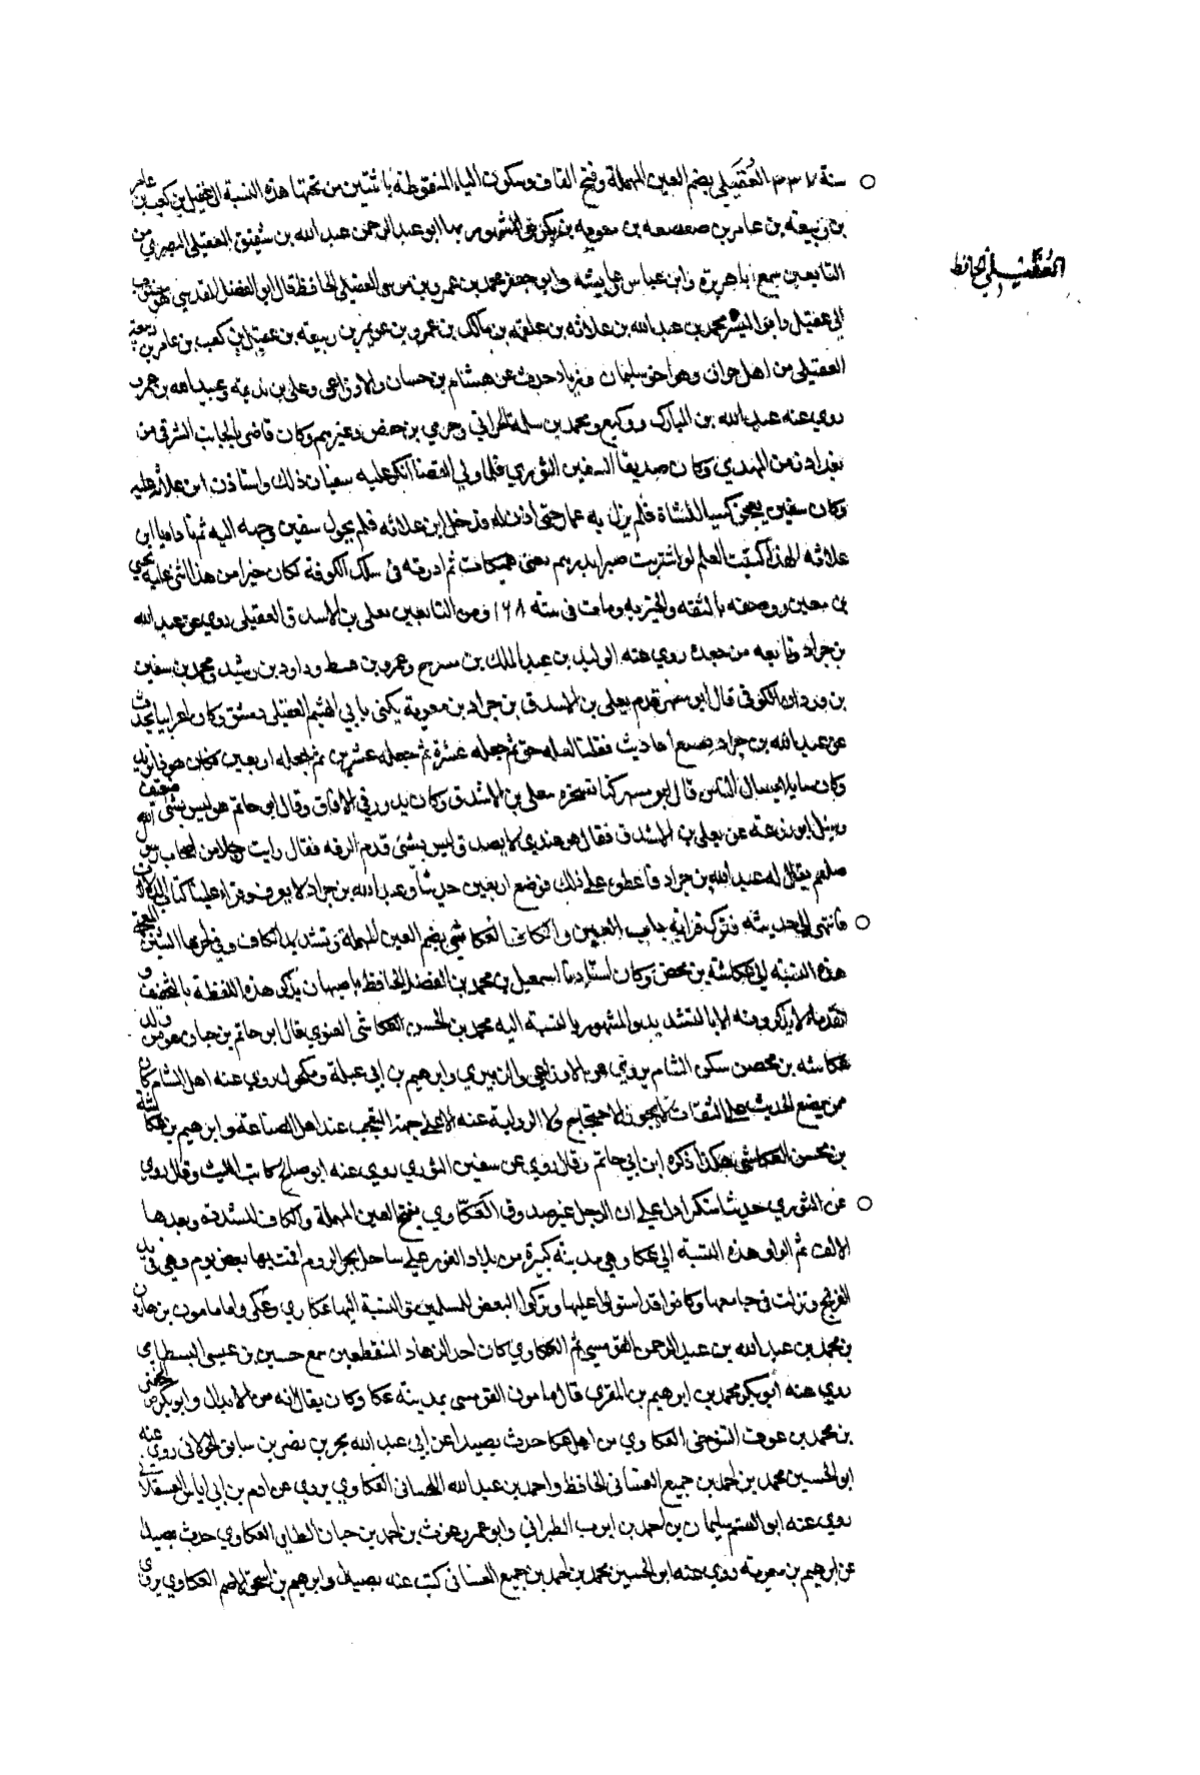 سنة ٣٣٧ العُقَيلي بضم العين المهملة وفتح القاف وسكون الياء المنقوطة باثنتين من تحتها هذه النسبة الى عقيل بن كعب بن عامر
بن ربيعة بن عامر بن صعصعه بن معويه بن بكر فالمشهور بها ابو عبد الرحمن عبد الله بن شقيق العقيلي البصري من
العُقَيْلي الحافظ
التابعين سمع ابا هريرة وابن عباس وعايشه وابو جعفر محمد بن عمرو بن موسى العقيلي الحافظ قال ابو الفضل المقدسي هو منسوب
الى عقيل وابو اليسر محمد بن عبد الله بن علاثه بن علقمه بن مالك بن عمرو بن عويمر بن ربيعه بن عقيل بن كعب بن عامر بن ربيعة
العقيلي من اهل حران وهو اخو سليمان وزياد حدث عن هشام بن حسان والاوزاعي وعلي بن بذيمه وعبيد الله بن عمر
روي عنه عبد الله بن المبارك ووكيع ومحمد بن سلمة الحراني وحرمي بن حفص وغيرهم وكان قاضي بالجانب الشرقي من
بغداد زمن المهدي وكان صديقا لسفين الثوري فلما ولي القضا انكر عليه سفيان ذلك واستاذن ابن علاثه عليه
وكان سفين يعجن كسبا للشاة فلم يزل به عمار حتى اذن له فدخل ابن علاثه فلم يحول سفين وجهه اليه ثم ناداه يا ابن
علاثه الهذا كتبت العلم لو اشتريت صبرا بدرهم يعني سميكات ثم ادرته في سكك الكوفه لكان خيرا من هذا اثنى عليه يحيى
بن معين ووصفه بالثقه والخيريه ومات في سنة ١٦٨ ومن التابعين يعلى بن الاشدق العقيلي روي عن عبد الله
بن جراد روي عنه الوليد بن عبد الملك بن مسرح وعمرو بن قسط وداود بن رشيد ومحمد بن سفين
بن وردان الكوفي قال ابو مسهر قدم يعلى بن الاشدق بن جراد بن معوية يكنى بابي الهيثم العقيلي دمشق وكان اعرابيا يحدث
عن عبد الله بن جراد بسبع احاديث فقلنا لعله حق ثم جعله عشرة ثم جعله عشرين ثم جعله اربعين فكان هو ذا يزيد
وكان سايلا يسال الناس قال ابو مسهر كنا نسخر بيعلى بن الاشدق وكان يدور في الافاق وقال ابو حاتم هو ليس بشئ ضعيف
وسيل ابو زرعة عن يعلى بن الاشدق فقال هو عندي لا يصدق ليس بشئ قدم الرقه فقال رايت رجلا من اصحاب رسول الله
صلعم يقال له عبد الله بن جراد فاعطوه على ذلك فوضع اربعين حديثا وعبد الله بن جراد لا يعرف وقراء علينا كتاب
فانتهى الى حديثه فترك قراته باب العين والكاف العكاشي بضم العين المهملة وتشديد الكاف وفي اخرها الشين المعجمة
هذه النسبة الى عكاشة بن محصن وكان استاذنا اسمعيل بن محمد بن الفضل الحافظ باصبهان يذكر هذه اللفظه بالتخفيف و
لا يذكرونه الا بالتشديد والمشهور بالنسبة اليه محمد بن الحسن العكاشي الغنوي قال ابو حاتم بن حبان هو من ولد
عكاشه بن محصن سكن الشام يروي عن الاوزاعي والزبيري وابرهيم بن ابي عبلة ومكحول روي عنه اهل الشام كان
من يضع الحديث على الثقات لا يجوز الاحتجاج به ولا الرواية عنه الا على جهة التعجب عند اهل الصناعة وابرهيم بن عكاشة
بن محسن العكاشي هكذا ذكره ابن ابي حاتم وقال روي عن سفين الثوري روي عنه ابو صالح كاتب الليث وقال روي
عن الثوري حديثا منكرا دل على ان الرجل غير صدوق العَكّاوي بفتح العين المهملة والكاف المشدده وبعدها
الالف ثم الواو هذه النسبة الى عكا وهي مدينة كبيرة من بلاد الثغور على ساحل بحر الروم اقمت بها بعض يوم وهي في يد
الفرنج ونزلت في جامعها وكانوا قد استولوا عليها وتركوا البعض للمسلمين والنسبة اليها عكاوي وعكي واما مامون بن هارون
بن محمد بن عبد الله بن عبد الرحمن القومسي ثم العكاوي كان احد الزهاد المنقطعين سمع حسين بن عيسى البسطامي
روي عنه ابو بكر محمد بن ابرهيم بن المقرى قال مامون القومسى بمدينة عكا وكان يقال انه من الابدال وابو بكر
بن محمد بن عوف التنوخي العكاوي من اهل عكا حدث بصيدا عن ابي عبد الله بحر بن نصر بن سابق الخولاني روى عنه
ابو الحسين محمد بن احمد بن جميع الغسانى الحافظ واحمد بن عبد الله اللحياني العكاوي يروي عن ادم بن ابي اياس العسقلاني
روي عنه ابو القسم سليمان بن احمد بن ايوب الطبراني وابو عمرو غوث بن احمد بن حبان الطايي العكاوي حدث بصيدا
عن ابرهيم بن معوية روي عنه ابو الحسين محمد بن احمد بن جميع الغسانى كتب عنه بصيدا وابرهيم بن اسحق العكاوي يروي